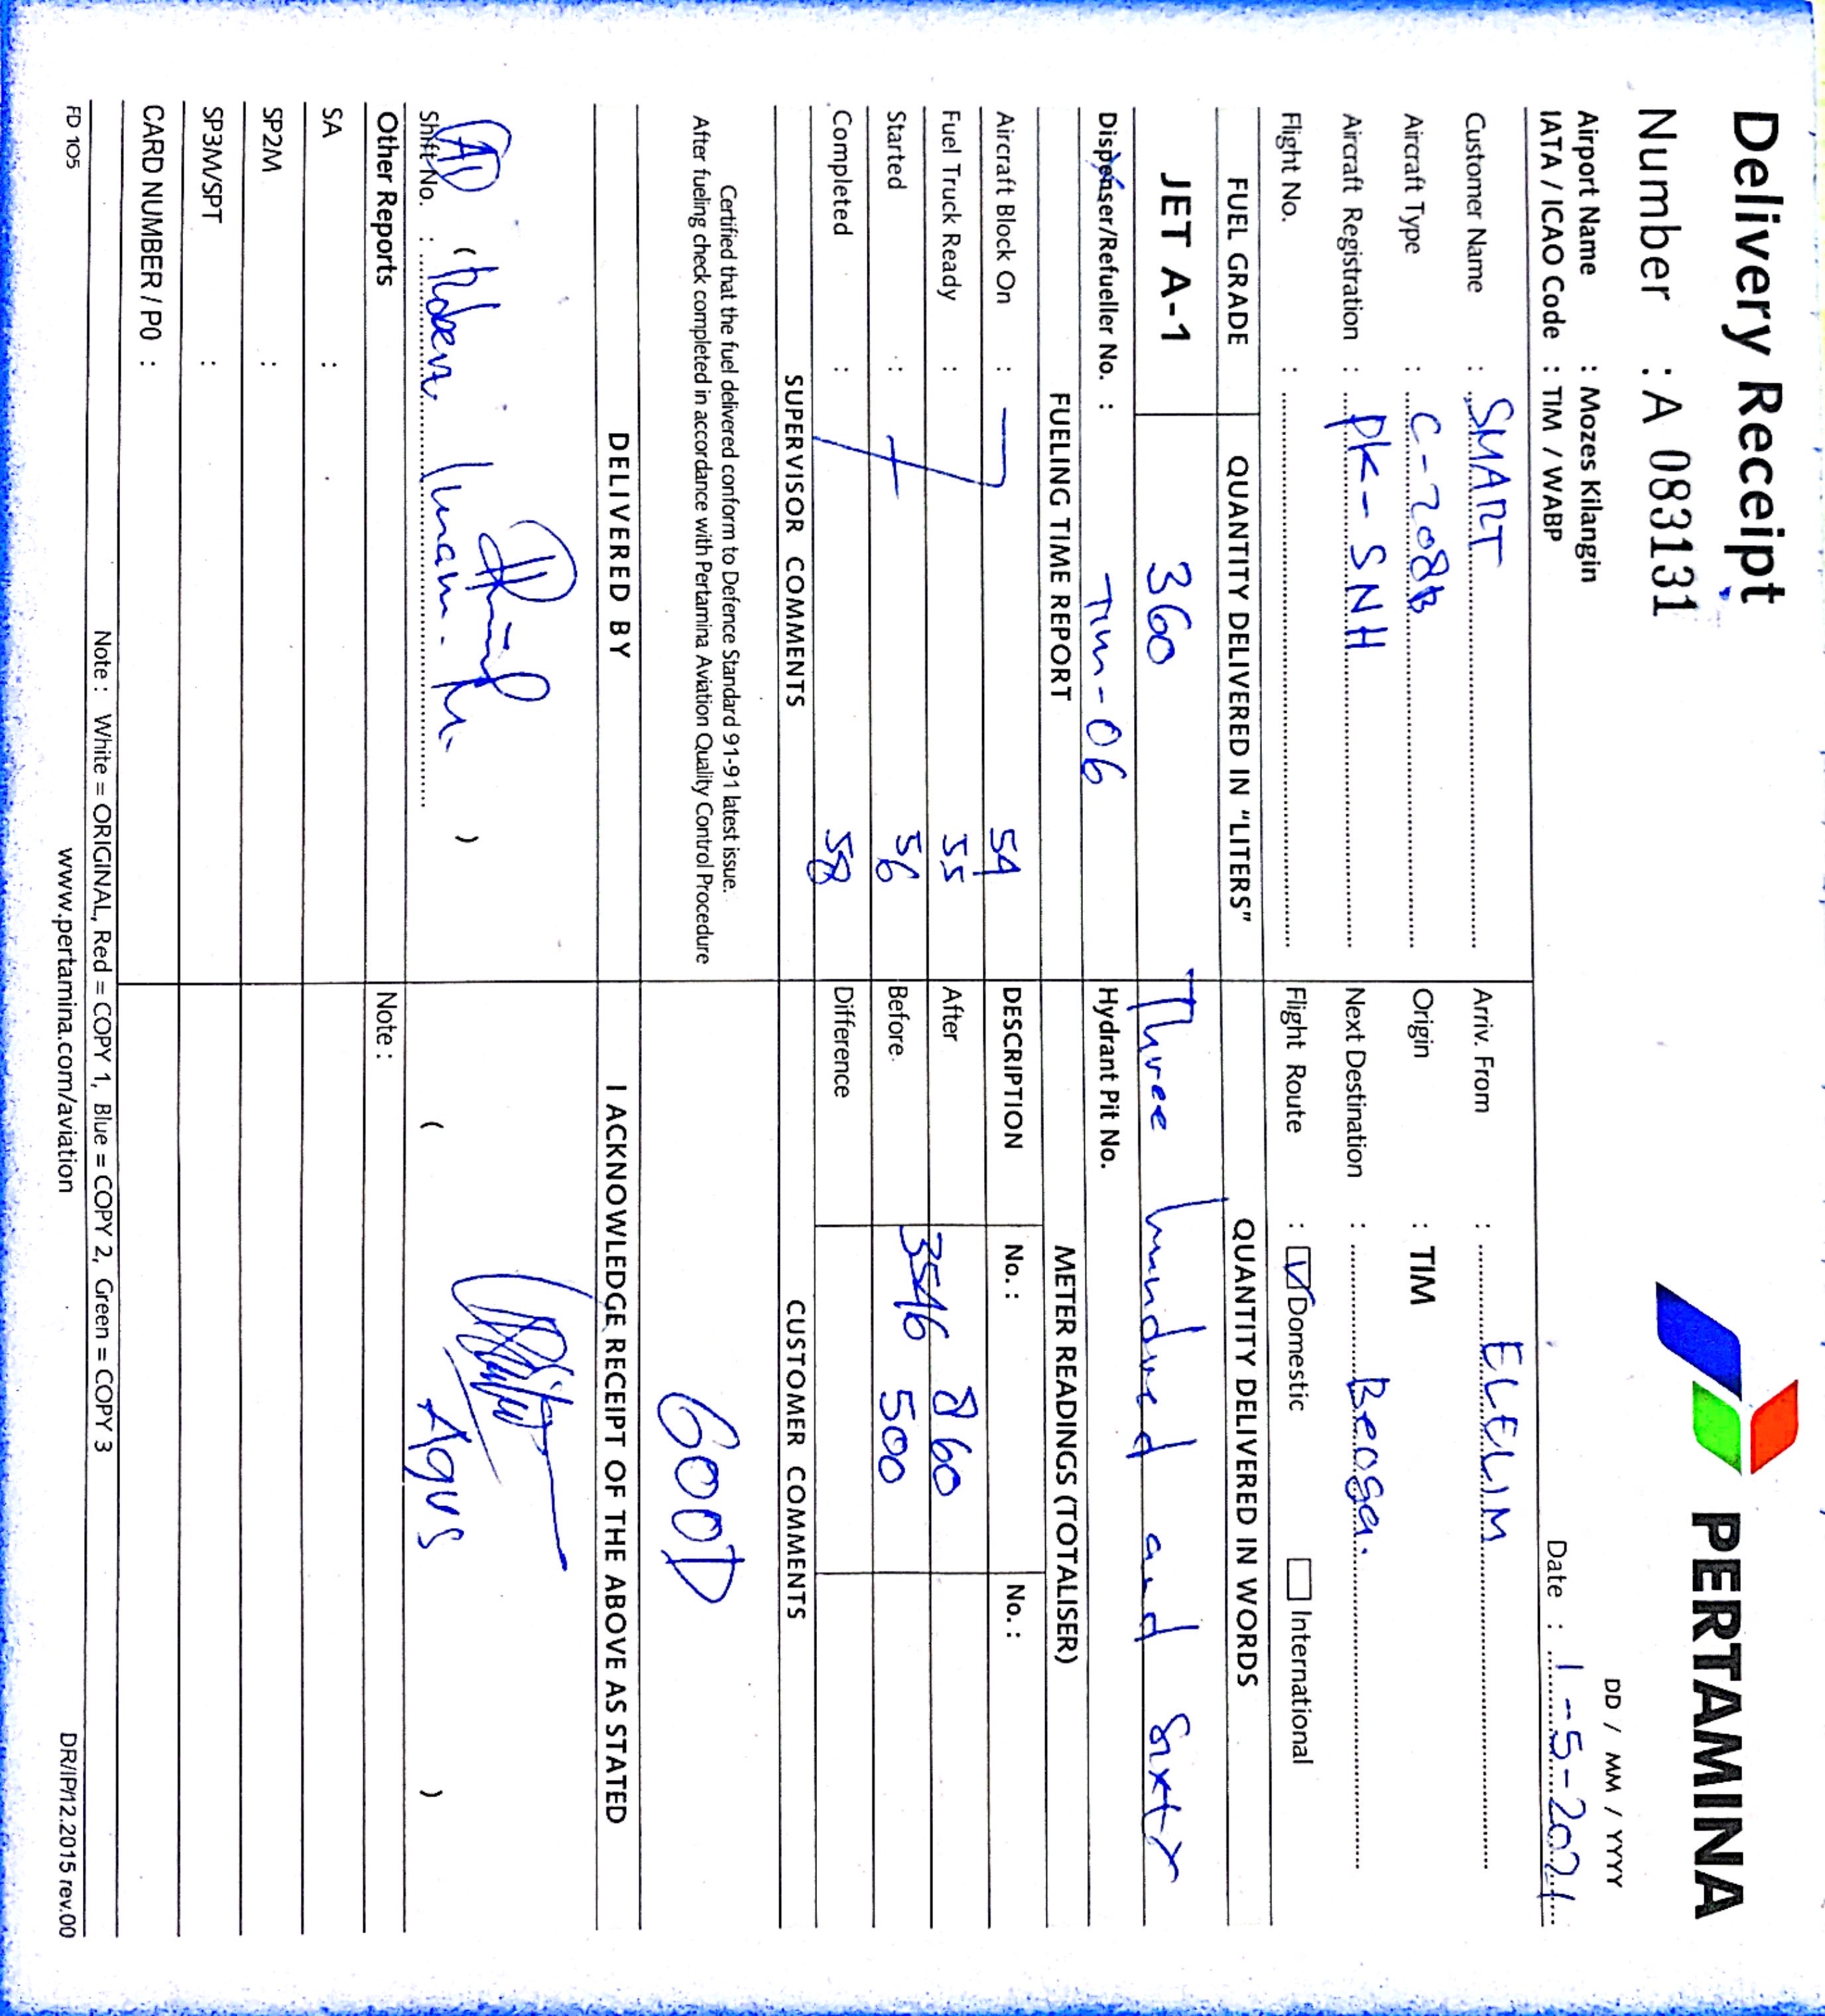 Delivery Receipt
PERTAMINA
Number : A 083131
DD / MM / YYYY
Airport Name : Mozes Kilangin
IATA / ICAO Code : TIM / WABP
Date : 1-5-2021
Customer Name : SMART
Arriv. From : ELELIM
Aircraft Type : C-208B
Origin : TIM
Aircraft Registration : PK-SNH
Next Destination : Beoga.
Flight No. :
Flight Route : Domestic International
FUEL GRADE QUANTITY DELIVERED IN "LITERS" QUANTITY DELIVERED IN WORDS
JET A-1 360 Three hundred and sixty
Dispenser/Refueller No. : TIM-06 Hydrant Pit No.
FUELING TIME REPORT METER READINGS (TOTALISER)
Aircraft Block On : 54 DESCRIPTION No. : No. :
Fuel Truck Ready : 55 After 860
Started : 56 Before 3546 500
Completed : 58 Difference
SUPERVISOR COMMENTS CUSTOMER COMMENTS
Certified that the fuel delivered conform to Defence Standard 91-91 latest issue.
After fueling check completed in accordance with Pertamina Aviation Quality Control Procedure
GOOD
DELIVERED BY I ACKNOWLEDGE RECEIPT OF THE ABOVE AS STATED
Shift No. : ( ) ( Agus )
Other Reports Note :
SA :
SP2M :
SP3M/SPT :
CARD NUMBER / PO :
Note : White = ORIGINAL, Red = COPY 1, Blue = COPY 2, Green = COPY 3
FD 105 www.pertamina.com/aviation DR/IP/12.2015 rev.00